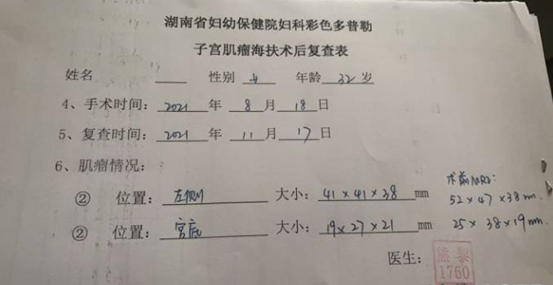 湖南省妇幼保健院妇科彩色多普勒
子宫肌瘤海扶术后复查表
姓名 性别 女 年龄 32 岁
4、手术时间: 2021 年 8 月 18 日
5、复查时间: 2021 年 11 月 17 日
6、肌瘤情况:
② 位置: 左侧 大小: 41×41×38 mm
② 位置: 宫底 大小: 19×27×21 mm
术前MRI:
52×47×38mm
25×38×19mm
医生:
1760